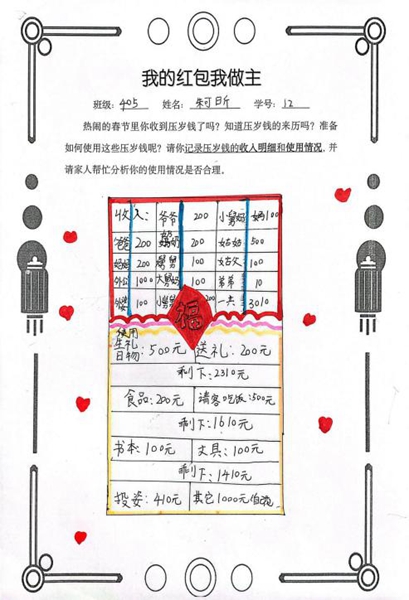 我的红包我做主
班级: 405 姓名: 柯昕 学号: 12
热闹的春节里你收到压岁钱了吗？知道压岁钱的来历吗？准备
如何使用这些压岁钱呢？请你记录压岁钱的收入明细和使用情况，并
请家人帮忙分析你的使用情况是否合理。
收入: 爷爷 200 小舅妈 100
爸爸 200 奶奶 200 姑妈 500
妈妈 200 舅舅 100 姑父 100
外公 1000 大舅妈 100 弟弟 10
外婆 100 小舅 200 一共 3010
福
使用
生日礼物: 500元 送礼: 200元
剩下: 2310元
食品: 200元 请客吃饭: 500元
乖下: 1610元
书本: 100元 文具: 100元
剩下: 1410元
投姿: 410元 其它1000元自花